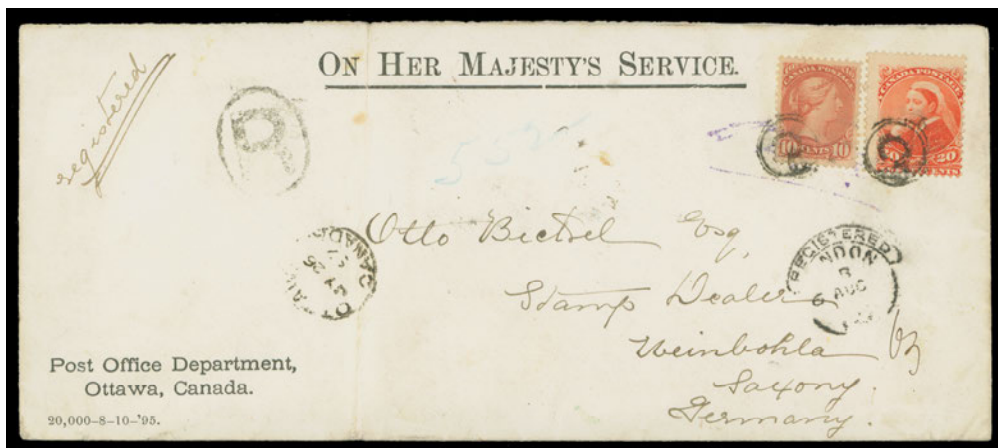 ON HER MAJESTY'S SERVICE.
registered
R
CANADA POSTAGE
10 CENTS 10
CANADA POSTAGE
20 CENTS
R
R
552
Otto Bickel Esq,
Stamp Dealer
Weinbohla
Saxony.
Germany.
OTTAWA
CANADA
REGISTERED
LONDON
AUG
Post Office Department,
Ottawa, Canada.
20,000–8–10–'95.